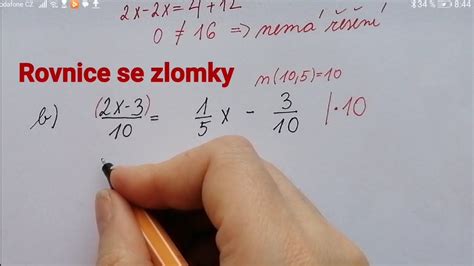 odafone CZ 34 % 8:44
2x-2x = 4+12
0 ≠ 16 => nemá řešení
Rovnice se zlomky
n(10,5)=10
b) (2x-3)/10 = 1/5 x - 3/10 /·10